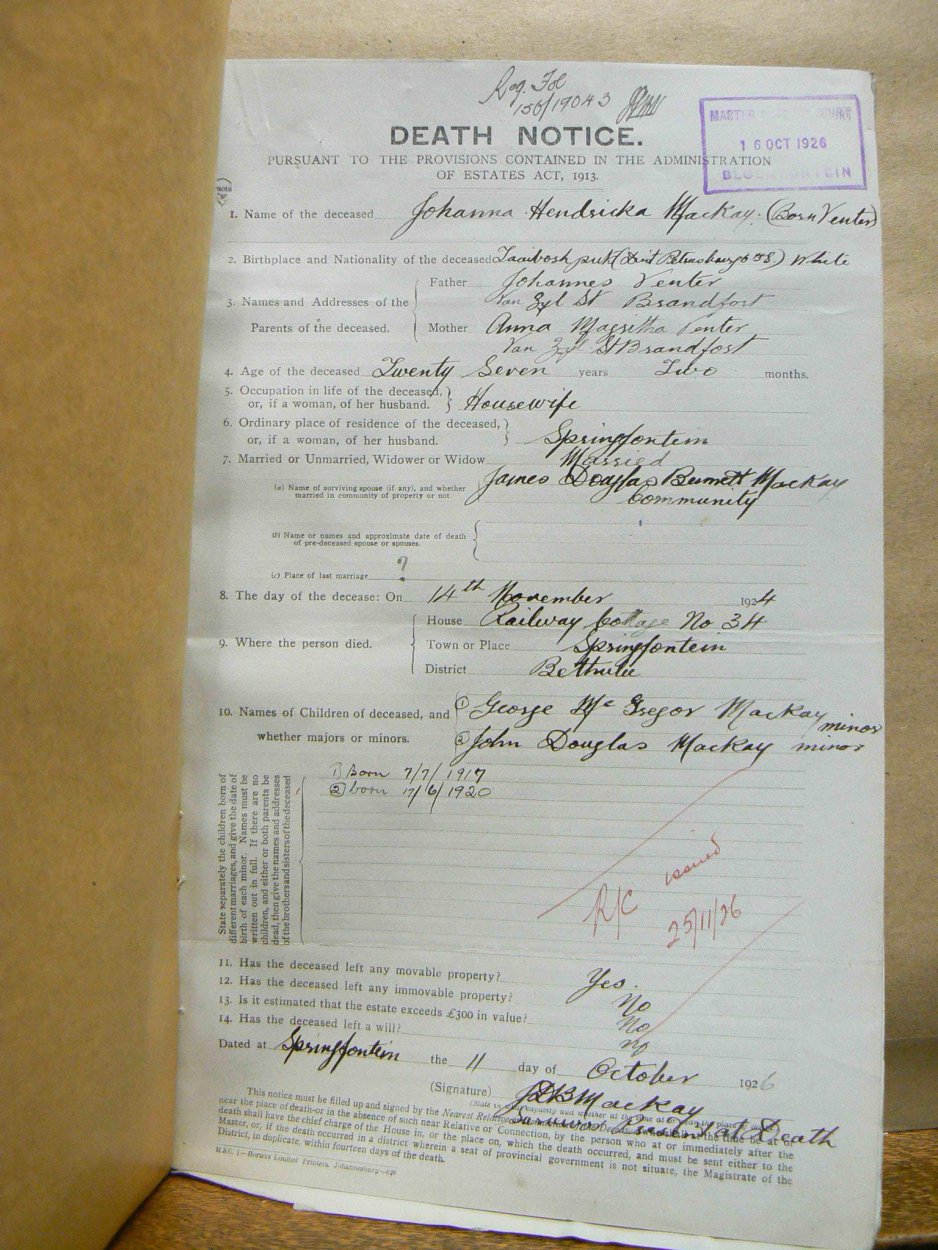 Reg. Fol
156/19043
DEATH NOTICE.
MASTER
16 OCT 1926
BLOEMFONTEIN
PURSUANT TO THE PROVISIONS CONTAINED IN THE ADMINISTRATION
OF ESTATES ACT, 1913.
1. Name of the deceased Johanna Hendricka Mackay. (Born Venter)
2. Birthplace and Nationality of the deceased (Dist Petrusburg OFS) White
3. Names and Addresses of the Parents of the deceased.
Father Johannes Venter
Van Zyl St Brandfort
Mother Anna Magritha Venter
Van Zyl St Brandfort
4. Age of the deceased Twenty Seven years Two months.
5. Occupation in life of the deceased, or, if a woman, of her husband. } Housewife
6. Ordinary place of residence of the deceased, or, if a woman, of her husband. } Springfontein
7. Married or Unmarried, Widower or Widow Married
(a) Name of surviving spouse (if any), and whether married in community of property or not. James Douglas Burnett Mackay
Community
(b) Name or names and approximate date of death of pre-deceased spouse or spouses.
(c) Place of last marriage ?
8. The day of the decease: On 14th November 1924
9. Where the person died.
House Railway Cottage No 34
Town or Place Springfontein
District Bethulie
10. Names of Children of deceased, and whether majors or minors.
(1) George Mc Gregor Mackay minor
(2) John Douglas Mackay minor
State separately the children born of
different marriages, and give the date of
birth of each minor. Names must be
written out in full. If there are no
children, and either or both parents be
dead, then give the names and addresses
of the brothers and sisters of the deceased
1) Born 7/7/1917
2) born 17/6/1920
R/C issued
25/11/26
11. Has the deceased left any movable property? Yes.
12. Has the deceased left any immovable property? No
13. Is it estimated that the estate exceeds £300 in value? No
14. Has the deceased left a will? No
Dated at Springfontein the 11 day of October 1926
(Signature) JDB Mackay
Surviving Present at Death
This notice must be filled up and signed by the Nearest Relative
near the place of death—or in the absence of such near Relative or Connection, by the person who at or immediately after the
death shall have the chief charge of the House in, or the place on, which the death occurred, and must be sent either to the
Master, or, if the death occurred in a district wherein a seat of provincial government is not situate, the Magistrate of the
District, in duplicate, within fourteen days of the death.
M.S.C. 1.—Hortors Limited Printers, Johannesburg